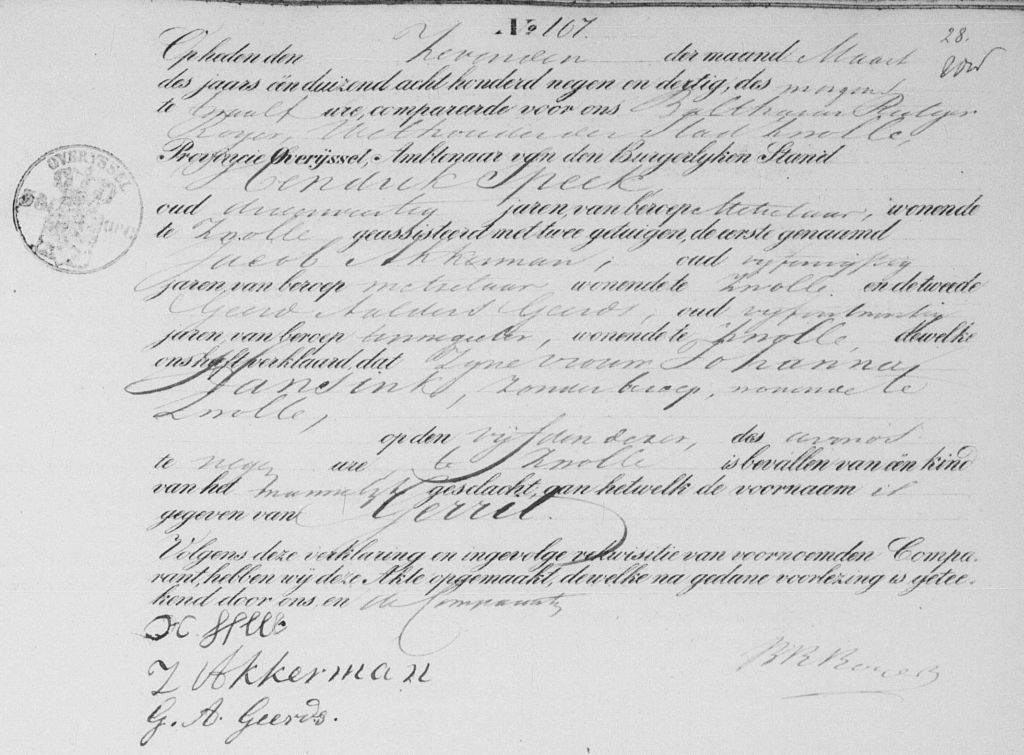 No 167.
28.
Op heden den Zevenden der maand Maart
des jaars één duizend acht honderd negen en dertig, des morgens
te twaalf ure, compareerde voor ons Balthasar Rutger
Royer, Wethouder der Stad Zwolle,
Provincie Overijssel, Ambtenaar van den Burgerlyken Stand
Hendrik Speek
oud jaren, van beroep Metselaar, wonende
te Zwolle geassisteerd met twee getuigen, de eerste genaamd
Jacob Akkerman, oud
jaren, van beroep metselaar, wonende te Zwolle en de tweede
Geerd Aalders Geerds, oud
jaren, van beroep tinnegieter, wonende te Zwolle, dewelke
ons heeft verklaard, dat Zyne vrouw Johanna
Jansink, Zonder beroep, wonende te
Zwolle,
op den vijfden dezer, des avonds
te negen ure te Zwolle is bevallen van één kind
van het mannelyk geslacht, aan hetwelk de voornaam is
gegeven van Gerrit.
Volgens deze verklaring en ingevolge rekwisitie van voornoemden Compa-
rant, hebben wij deze Akte opgemaakt, dewelke na gedane voorlezing is getee-
kend door ons, en de Comparanten
J Akkerman
G. A. Geerds.
OVERYSSEL